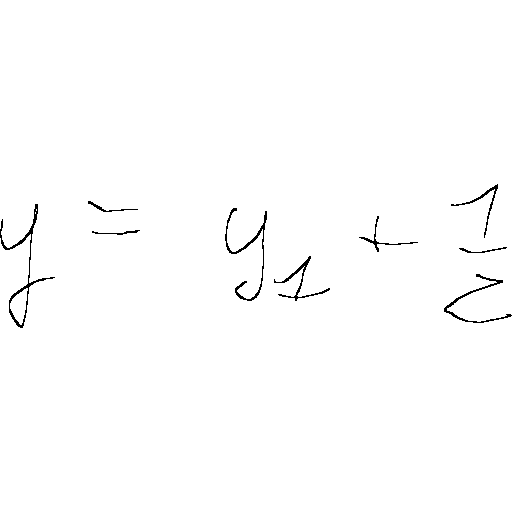 y = y_1 + \frac{1}{z}